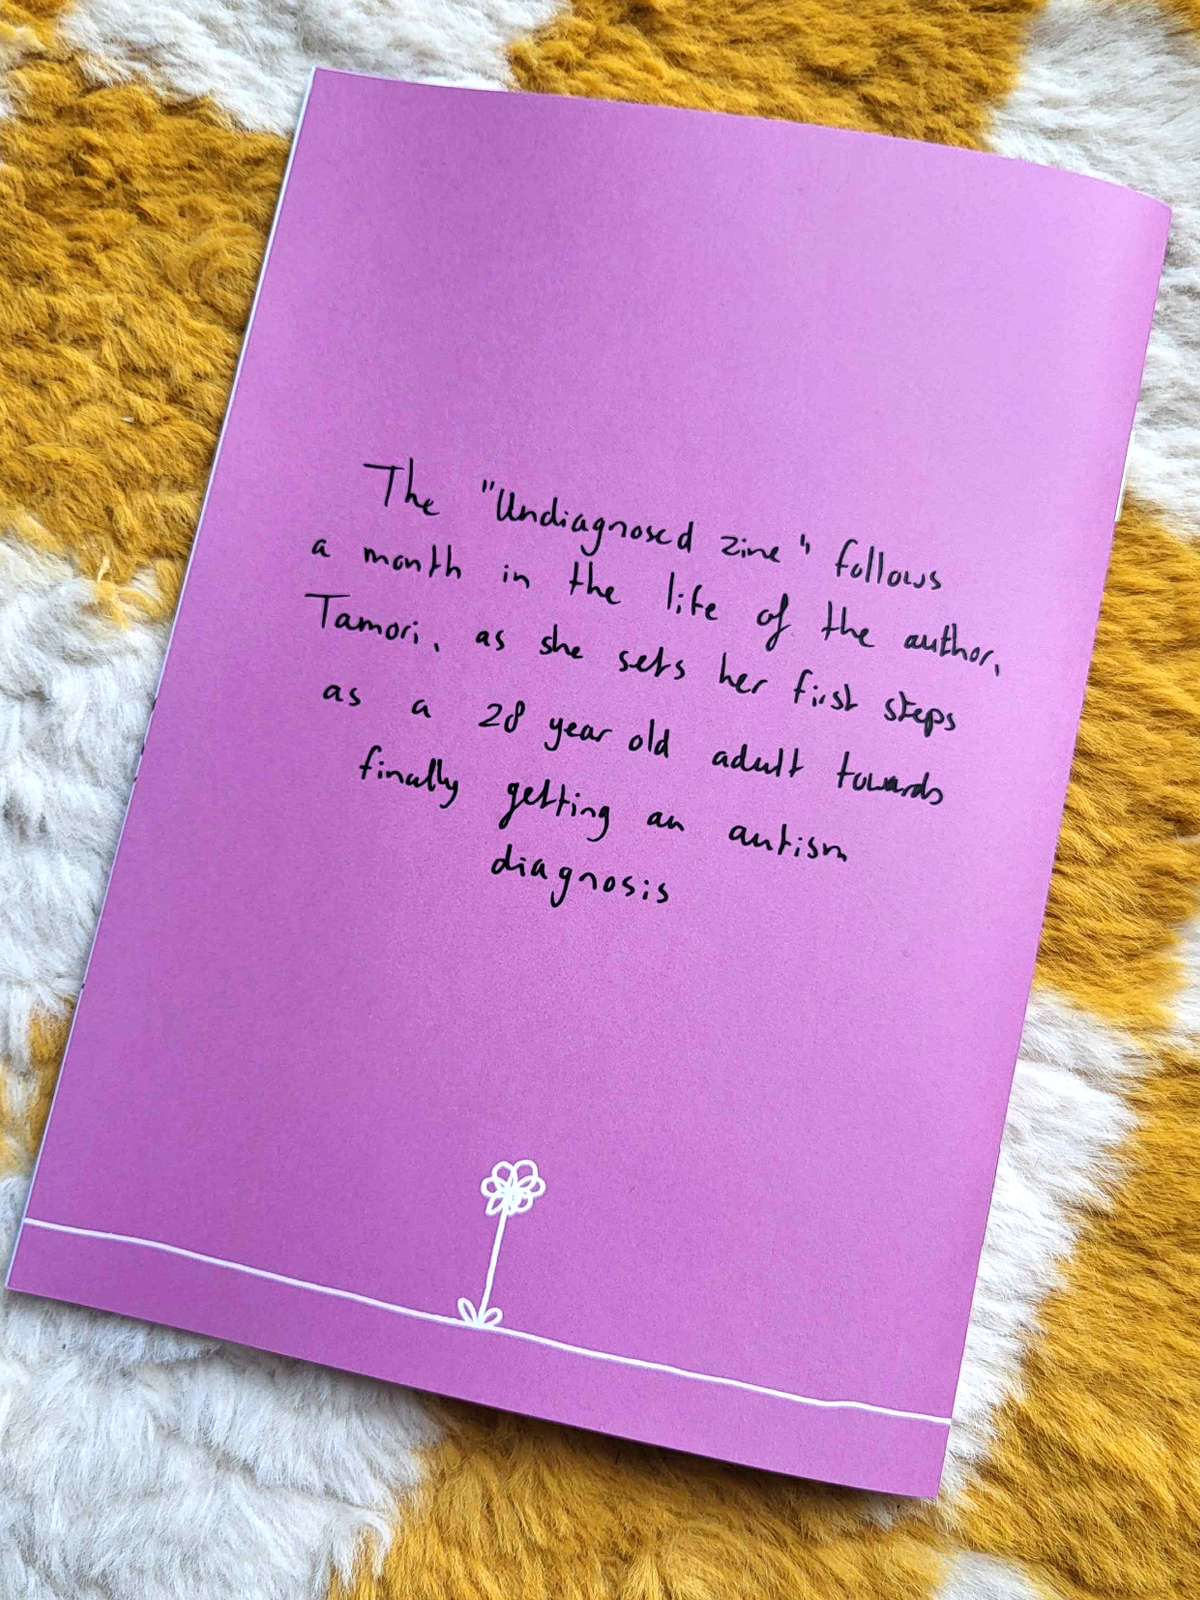 The "Undiagnosed zine" follows
a month in the life of the author,
Tamori, as she sets her first steps
as a 28 year old adult towards
finally getting an autism
diagnosis